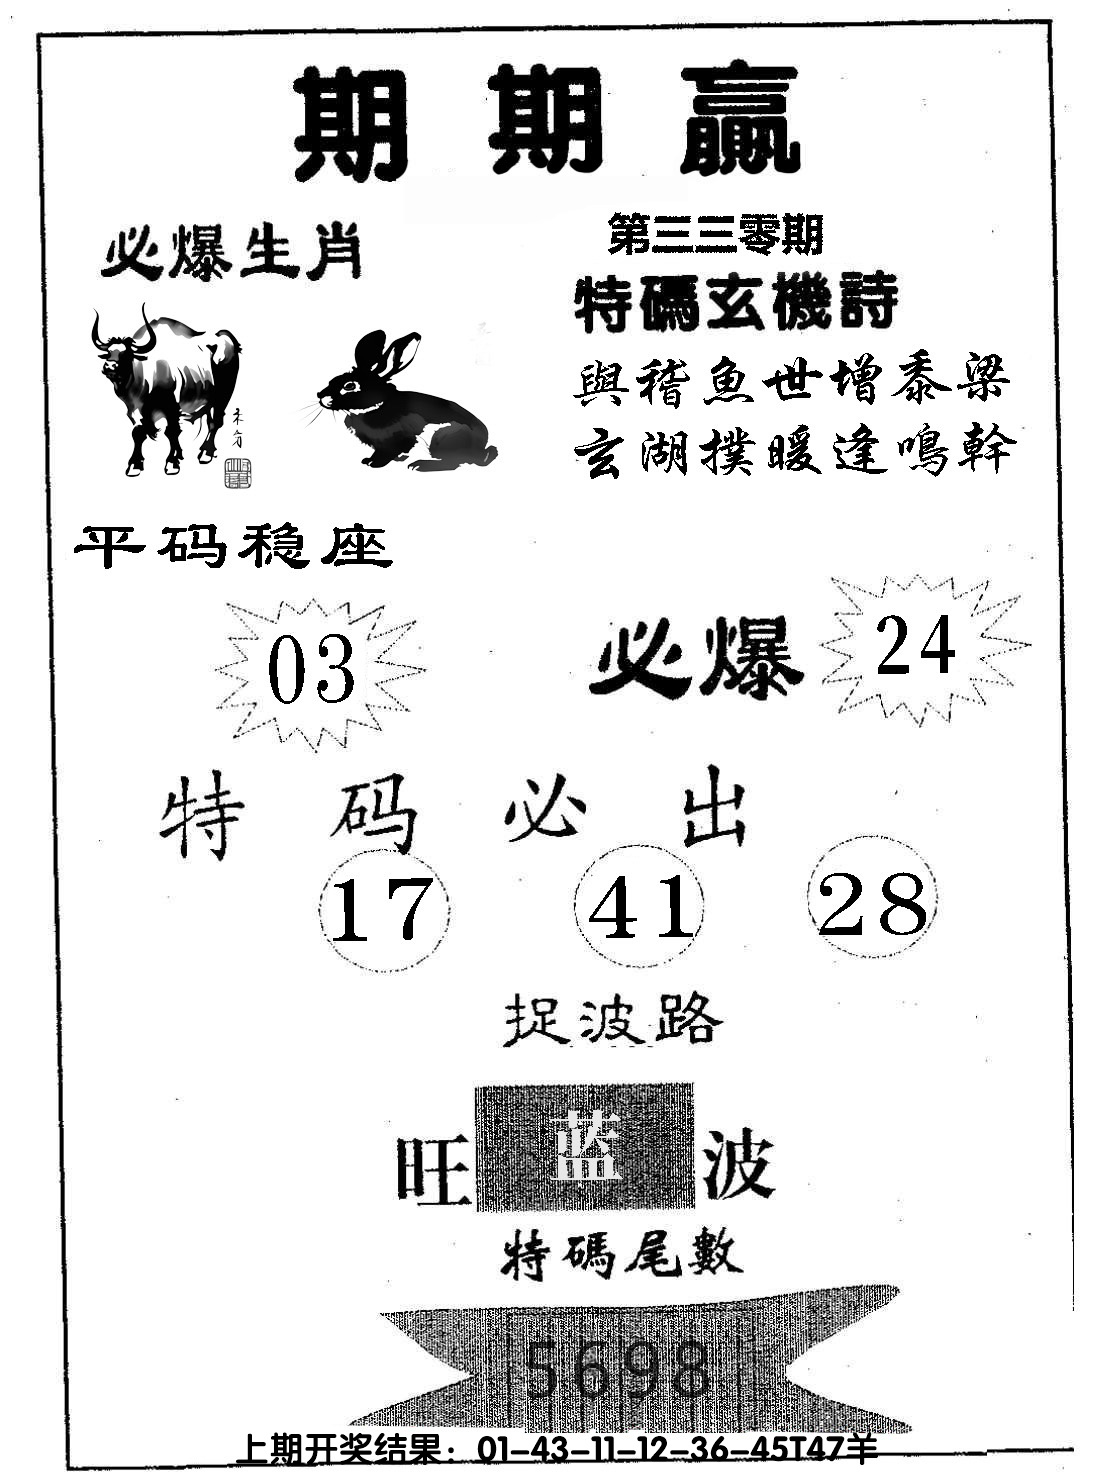 期期赢
必爆生肖
第三三零期
特碼玄機詩
與稽魚世增黍梁
玄湖撲暖逢鳴幹
平码稳座
03
必爆 24
特码必出
17 41 28
捉波路
旺蓝波
特碼尾數
5698
上期开奖结果：01-43-11-12-36-45T47羊